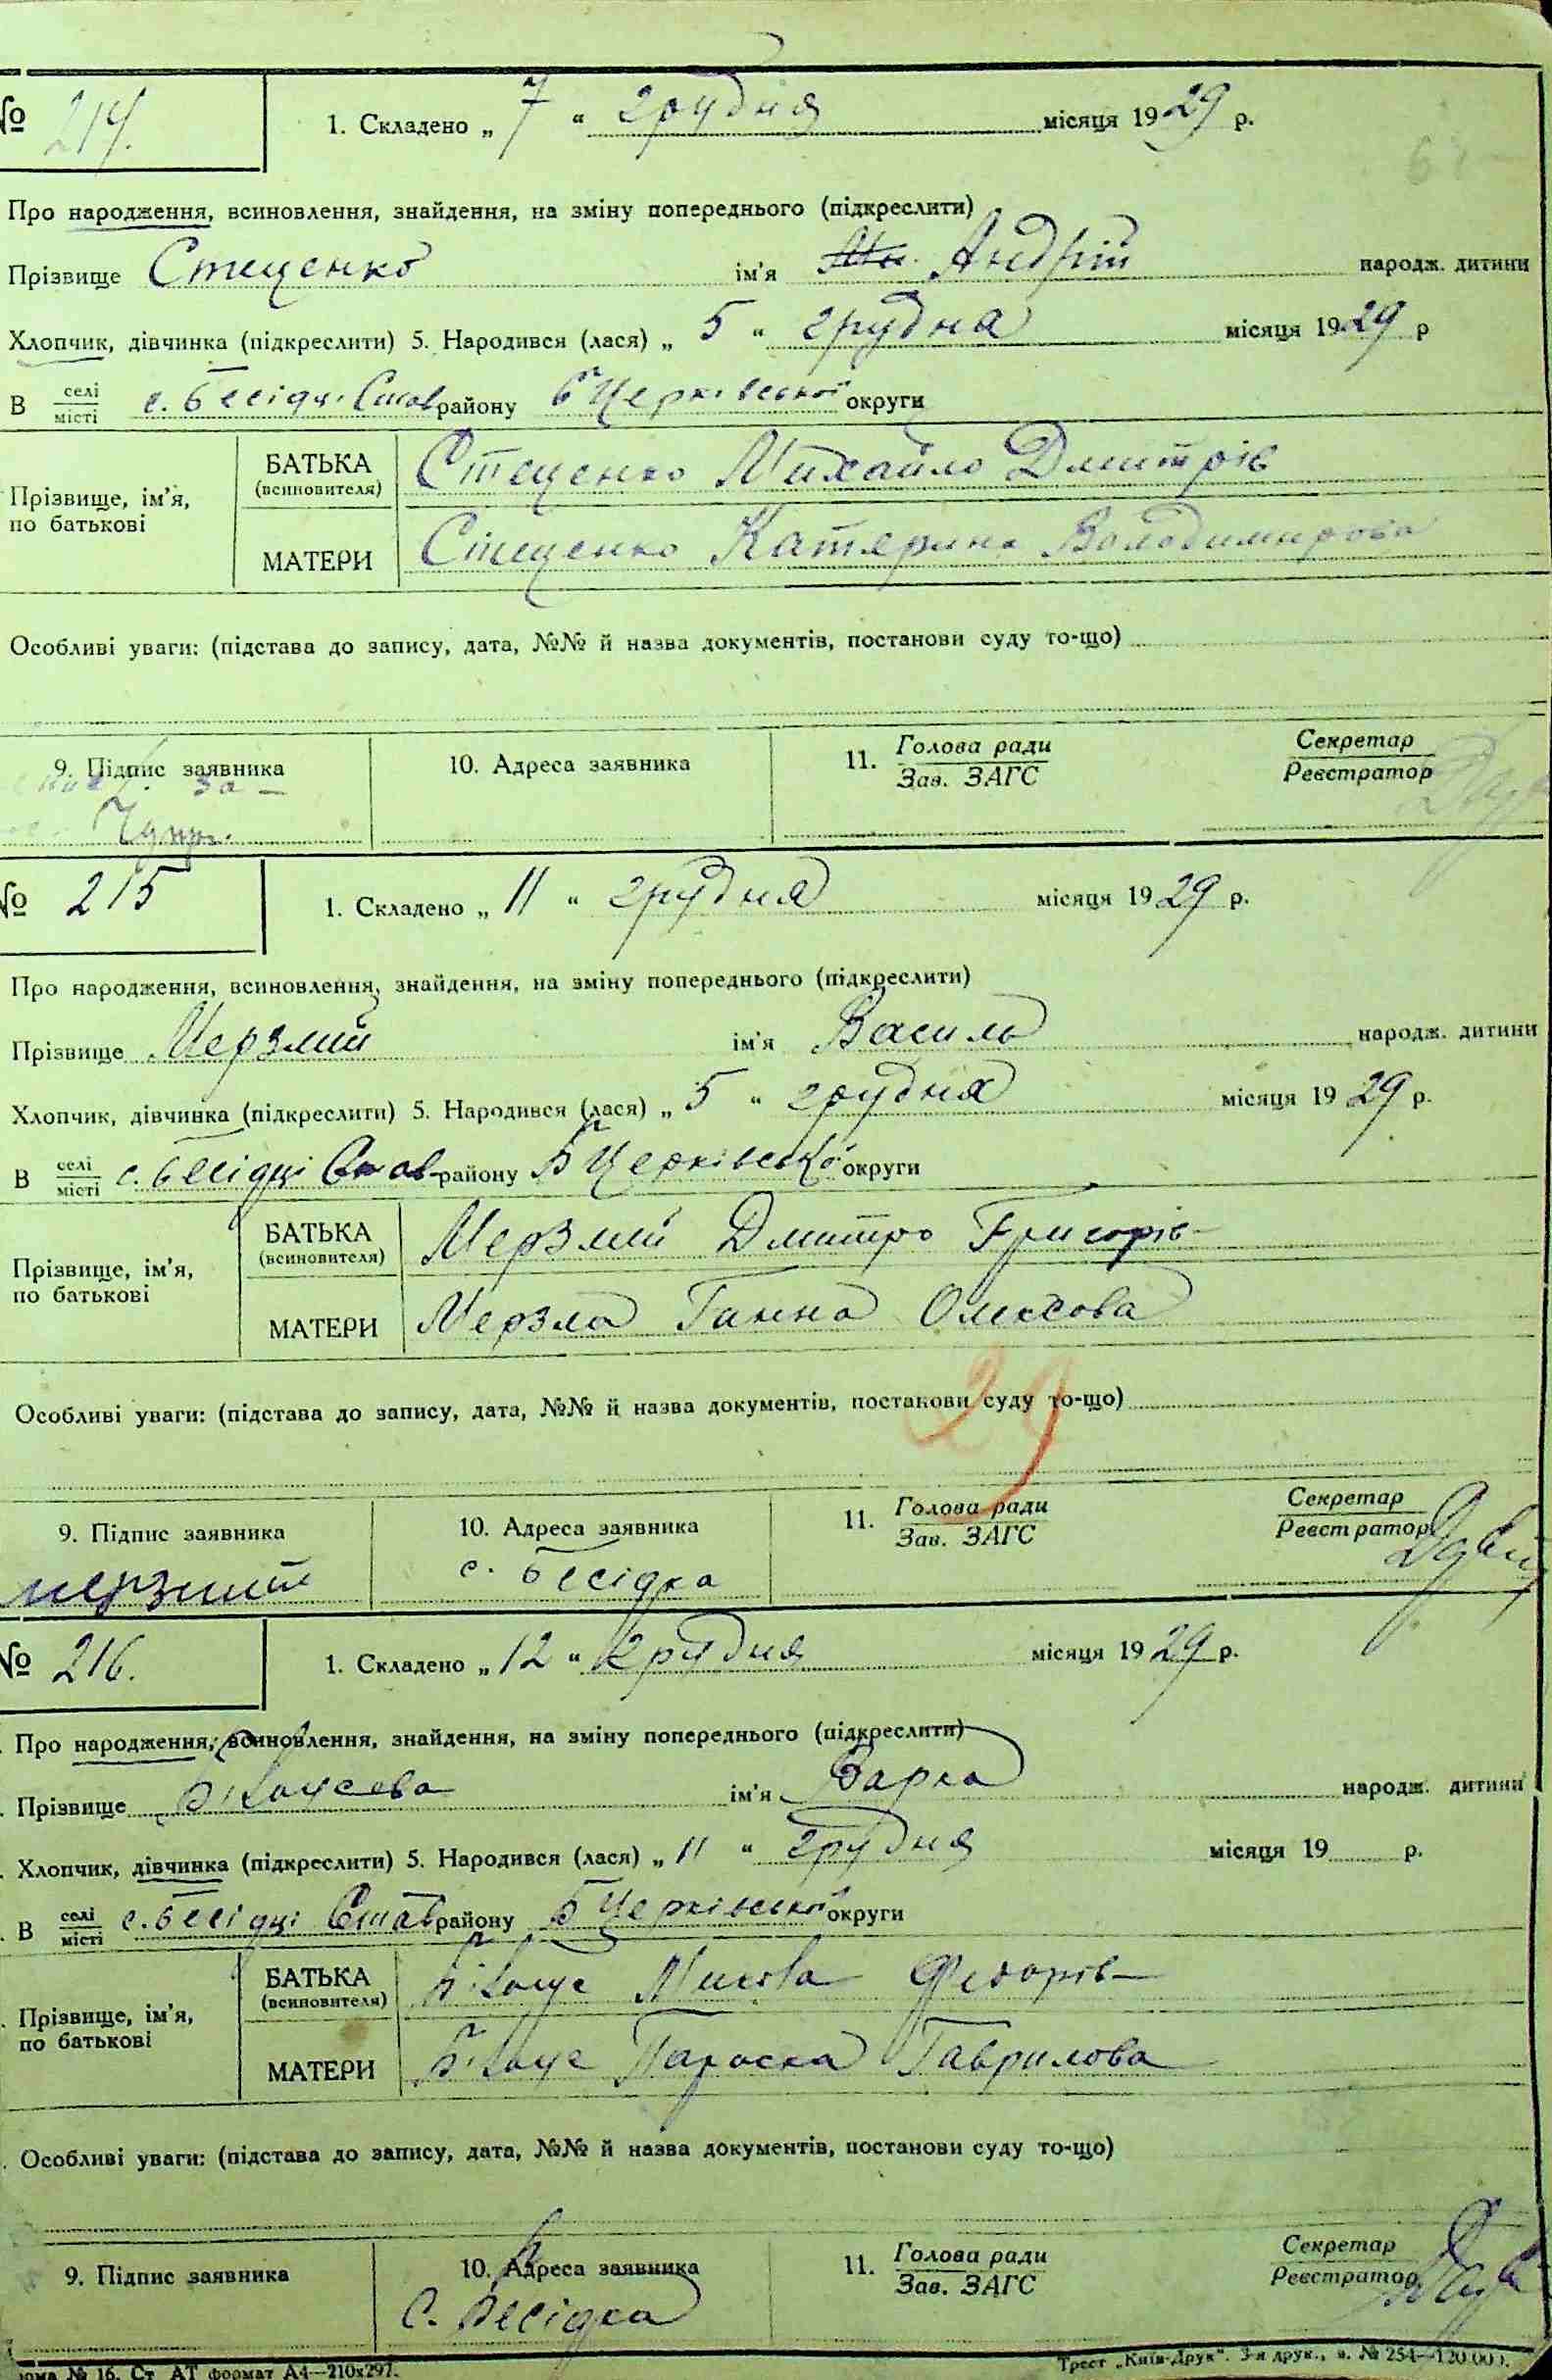 № 214. 1. Складено „ 7 " грудня місяця 1929 р.
Про народження, всиновлення, знайдення, на зміну попереднього (підкреслити)
Прізвище Стеценко ім'я Андрій народж. дитини
Хлопчик, дівчинка (підкреслити) 5. Народився (лася) „ 5 " грудня місяця 1929 р
В селі місті с. Бесідці Став району Б Церківської округи
БАТЬКА Стеценко Михайло Дмитрів
(всиновителя)
Прізвище, ім'я,
по батькові
МАТЕРИ Стеценко Катерина Володимирова
Особливі уваги: (підстава до запису, дата, №№ й назва документів, постанови суду то-що)
9. Підпис заявника 10. Адреса заявника 11. Голова ради Секретар
Зав. ЗАГС Реєстратор
за
№ 215 1. Складено „ 11 " грудня місяця 1929 р.
Про народження, всиновлення, знайдення, на зміну попереднього (підкреслити)
Прізвище Мерзлий ім'я Василь народж. дитини
Хлопчик, дівчинка (підкреслити) 5. Народився (лася) „ 5 " грудня місяця 1929 р.
В селі місті с. Бесідці Став району Б Церківської округи
БАТЬКА Мерзлий Дмитро Григорів
(всиновителя)
Прізвище, ім'я,
по батькові
МАТЕРИ Мерзла Ганна Олексова
29
Особливі уваги: (підстава до запису, дата, №№ й назва документів, постанови суду то-що)
9. Підпис заявника 10. Адреса заявника 11. Голова ради Секретар
Зав. ЗАГС Реєстратор
мерзлий с. Бесідка
№ 216. 1. Складено „ 12 " грудня місяця 1929 р.
Про народження, всиновлення, знайдення, на зміну попереднього (підкреслити)
Прізвище ім'я Варка народж. дитини
Хлопчик, дівчинка (підкреслити) 5. Народився (лася) „ 11 " грудня місяця 19 р.
В селі місті с. Бесідці Став району Б Церківської округи
БАТЬКА Микола Федорів
(всиновителя)
Прізвище, ім'я,
по батькові
МАТЕРИ Параска Гаврилова
Особливі уваги: (підстава до запису, дата, №№ й назва документів, постанови суду то-що)
9. Підпис заявника 10. Адреса заявника 11. Голова ради Секретар
Зав. ЗАГС Реєстратор
С. Бесідка
№ 16. Ст АТ формат А4—210x297. Трест „Київ-Друк". 3-я друк., з. № 254—120.000.